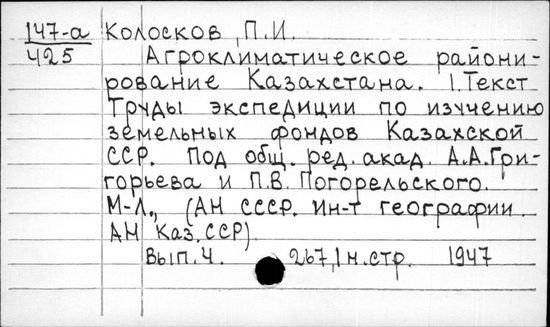 147-а Колосков, П.И.
425 Агроклиматическое райони-
рование Казахстана. 1.Текст
Труды экспедиции по изучению
земельных фондов Казахской
ССР. Под общ. ред. акад. А.А.Гри-
горьева и П.В. Погорельского.
М-Л., (АН СССР. Ин-т географии.
АН Каз.ССР)
Вып.4. 267,1 н.стр. 1947